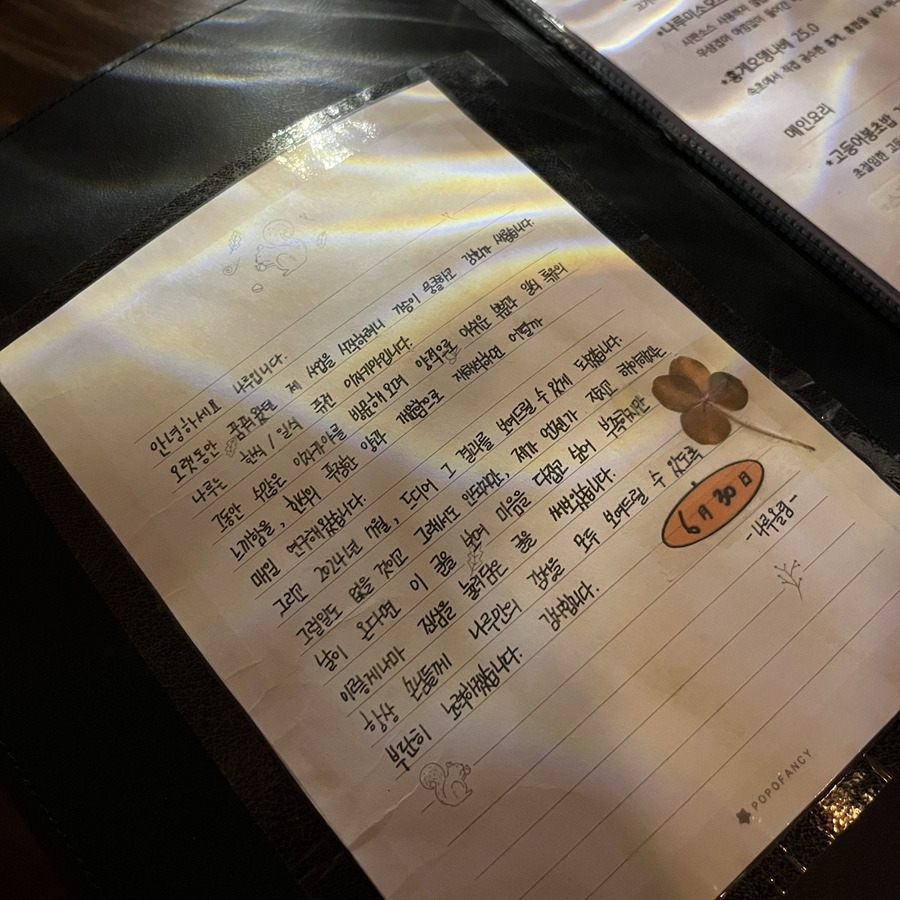 안녕하세요 나루입니다.
오랫동안 꿈꿔왔던 제 사업을 시작하려니 가슴이 뭉클하고 감회가 새롭습니다.
나루는 한식 / 일식 퓨전 이자카야입니다.
그동안 수많은 이자카야를 방문해 오며 양적으로 아쉬운 부분과 일식 특유의
느끼함을, 한식의 푹한 양과 깨끗함으로 재해석하면 어떨까
매일 연구해왔습니다.
그리고 2025년 4월, 드디어 그 결과를 보여드릴 수 있게 되었습니다.
그럴일도 없을 것이고 그래서도 안되지만, 제가 언젠가 지치고 해이해지는
날이 온다면 이 글을 읽어 마음을 다잡고 싶어 부족하지만
이렇게나마 진심을 눌러담은 글을 써보았습니다.
항상 손님들께 나루만의 감성을 모두 보여드릴 수 있도록
부단히 노력하겠습니다. 감사합니다.
6月 30日
-나루올림-
POPOFANCY
시판소스
*홍게오뎅나베 25.0
속초에서 직접 공수한 홍게
메인요리
*고등어봉초밥
초절임한